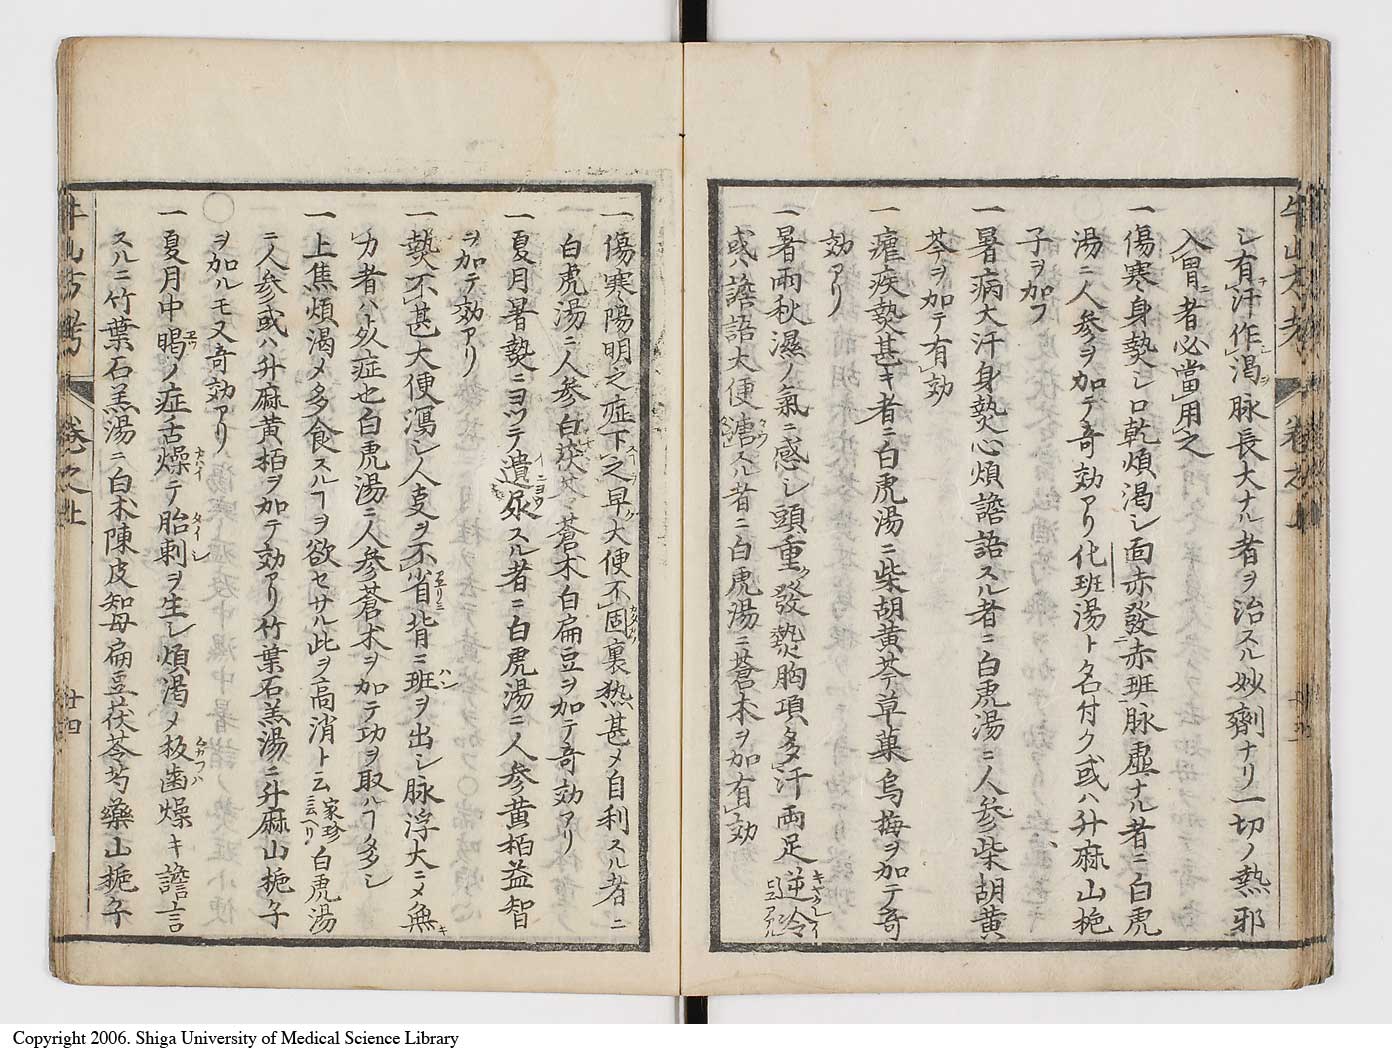 シ有汗作渇脉長大ナル者ヲ治スル妙劑ナリ一切ノ熱邪
入胃者必當用之
一傷寒身熱シ口乾煩渇シ面赤發赤班脉虚ナル者ニ白虎
湯ニ人参ヲ加テ竒効アリ化班湯ト名付ク或ハ升麻山梔
子ヲ加フ
一暑病大汗身熱心煩譫語スル者ニ白虎湯ニ人参柴胡黄
芩ヲ加テ有効
一瘧疾熱甚キ者ニ白虎湯ニ柴胡黄芩草菓烏梅ヲ加テ竒
効アリ
一暑雨秋濕ノ氣ニ感シ頭重發熱胸項多汗両足逆冷
或ハ譫語大便溏スル者ニ白虎湯ニ蒼朮ヲ加有効
牛山方考 卷之上
一傷寒陽明之症下之早大便不固裏熱甚メ自利スル者ニ
白虎湯ニ人参白茯苓蒼朮白扁豆ヲ加テ竒効アリ
一夏月暑熱ニヨツテ遺尿スル者ニ白虎湯ニ人参黄栢益智
ヲ加テ効アリ
一熱不甚大便瀉シ人事ヲ不省背ニ班ヲ出シ脉浮大ニメ無
力者ハ火症也白虎湯ニ人参蒼朮ヲ加テ功ヲ取ルヿ多シ
一上焦煩渇メ多食スルヿヲ欲セサル此ヲ高消ト云家珍ニ云ヘリ白虎湯
ニ人参或ハ升麻黄栢ヲ加テ効アリ竹葉石羔湯ニ升麻山梔子
ヲ加ルモ又竒効アリ
一夏月中暍ノ症舌燥テ胎刺ヲ生シ煩渇メ板歯燥キ譫言
スルニ竹葉石羔湯ニ白朮陳皮知母扁豆茯苓芍藥山梔子
牛山方考 卷之上 廿四
Copyright 2006. Shiga University of Medical Science Library